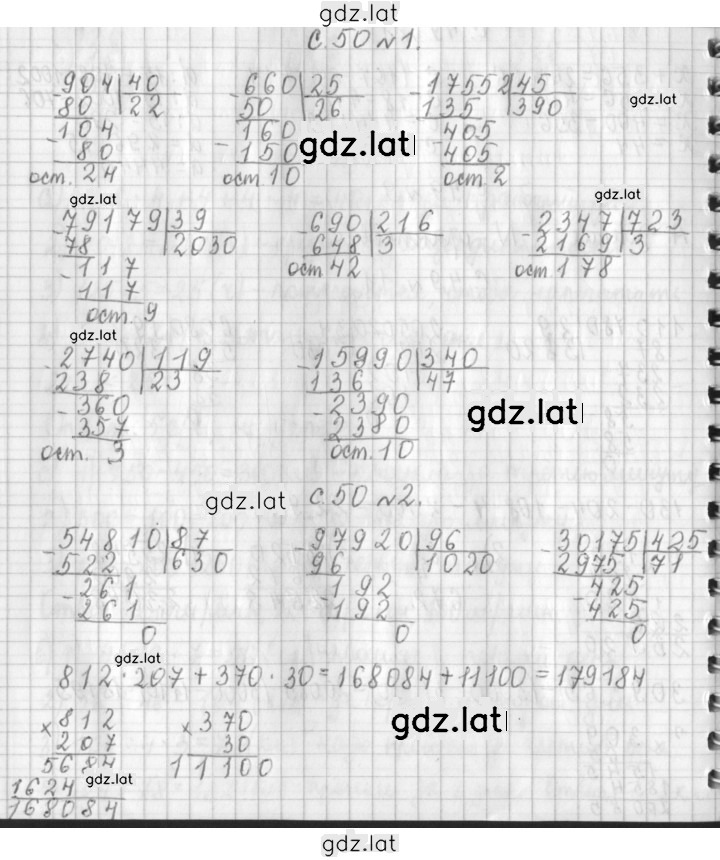 gdz.lat
с. 50 №1.
904 40 660 25 17552 45
80 22 50 26 135 390 gdz.lat
104 160 405
80 150 gdz.lat 405
ост. 24 ост. 10 ост 2
gdz.lat gdz.lat
79179 39 690 216 2347 723
78 2030 648 3 2169 3
117 ост 42 ост 178
117
ост. 9
gdz.lat
2740 119 15990 340
238 23 136 47
360 2390 gdz.lat
357 2380
ост. 3 ост. 10
gdz.lat с. 50 №2.
54810 87 97920 96 30175 425
522 630 96 1020 2975 71
261 192 425
261 192 425
0 0 0
gdz.lat
812 · 207 + 370 · 30 = 168084 + 11100 = 179184
× 812 × 370 gdz.lat
207 30
5684 11100
1624 gdz.lat
168084
gdz.lat